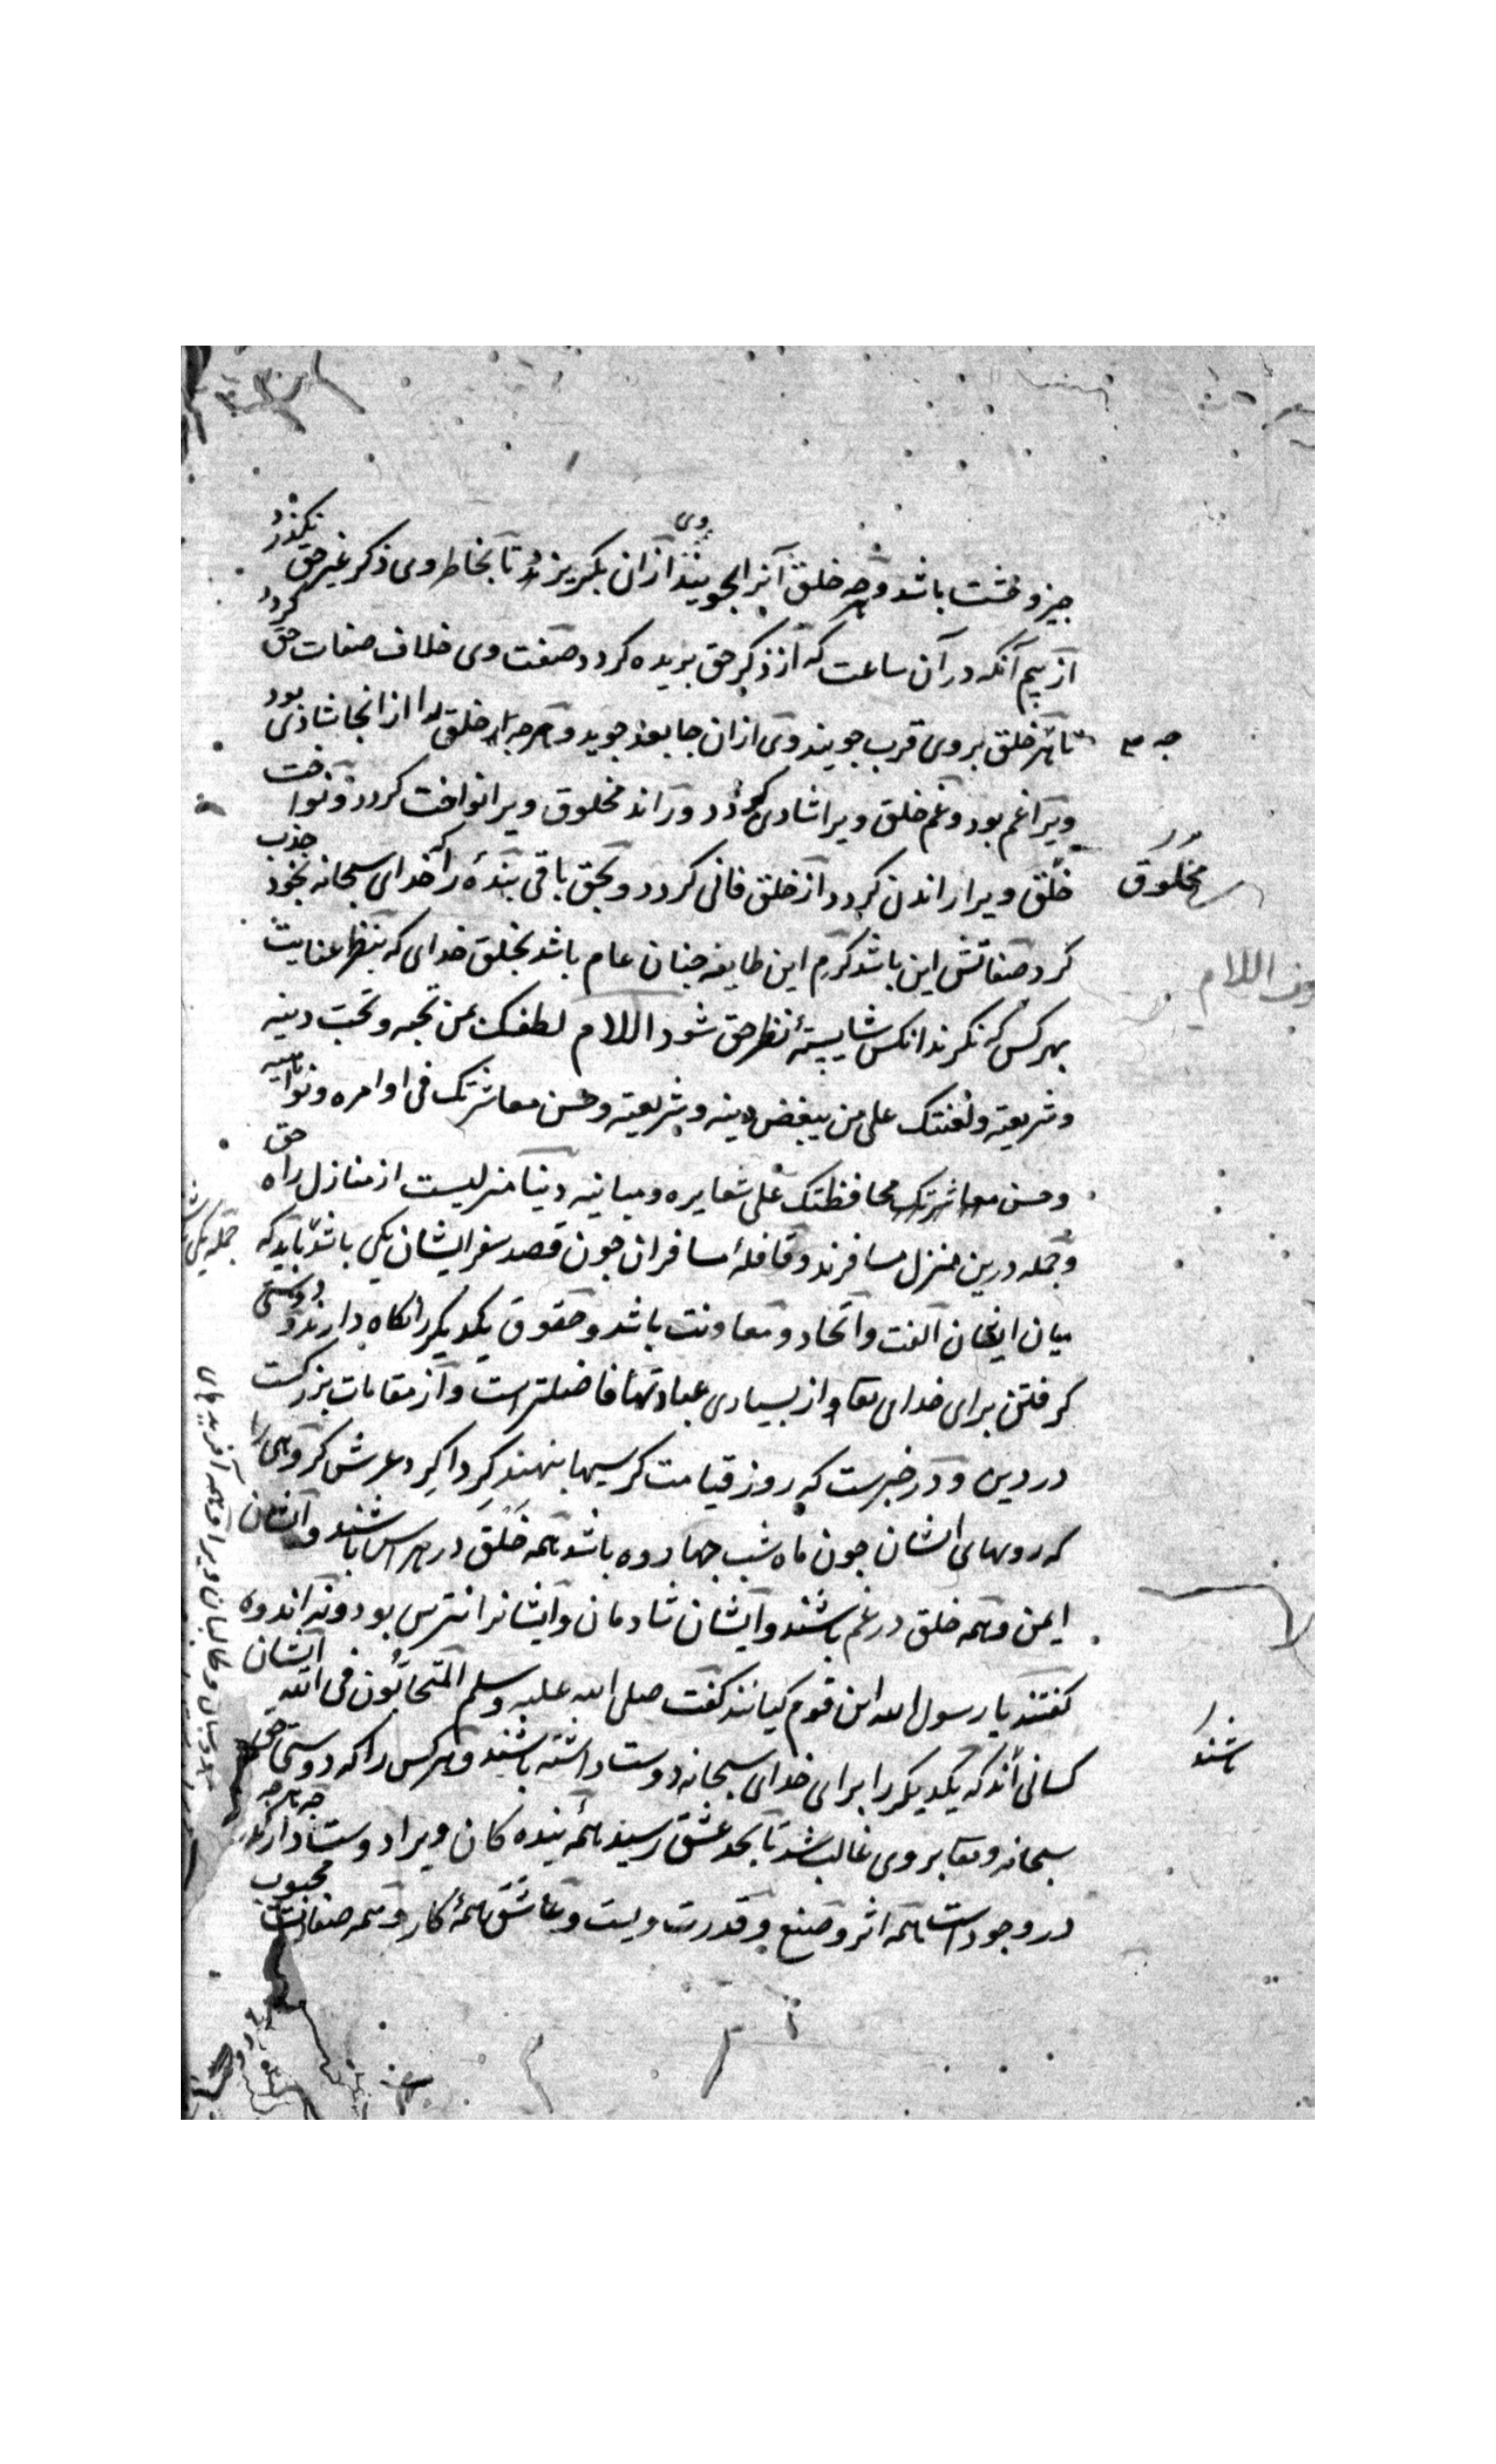 چیز وخشت باشد وهرچه خلق آنرا جویند وی ازان بگریزد تا بخاطر وی ذکر غیر حق نگذرد
از بیم آنکه در آن ساعت که از ذکر حق بریده کردد صفت وی خلاف صفات حق کردد
تا هرچه خلق بروی قرب جویند وی ازان جا بعد جوید وهرچه خلق را ازانجا شادی بود
ویرا غم بود وغم خلق ویرا شادی کردد وراند مخلوق ویرا نواخت کردد ونواخت
خلق ویرا راندن کردد از خلق فانی کردد وبحق باقی بندهٔ را که خدای سبحانه بخود جذب
کرد صفاتش این باشد کرم این طایفه چنان عام باشد بخلق خدای که بنظر عنایت
بهر کس که نکرند انکس شایستهٔ نظر حق شود اللام لطفک بمن تحبه وتحب دینه
وشریعته ولعنتک علی من یبغض دینه وشریعته وحسن معاشرتک فی اوامره ونواهیه
وحسن محافظتک علی شعایره ومبانیه دنیا منزلیست از منازل راه حق
وجمله درین منزل مسافرند وقافلهٔ مسافران چون قصد سفر ایشان یکی باشد باید که
میان ایشان الفت واتحاد ومعاونت باشد وحقوق یکدیکر را نکاه دارند ودوستی
کرفتن برای خدای تعا از بسیاری عبادتها فاضلتر است واز مقامات بزرکست
در دین ودر خبرست که روز قیامت کرسیها بنهند کردا کرد عرش کروهی را
که رویهای ایشان چون ماه شب چهارده باشد همه خلق در هراس باشند وایشان
ایمن وهمه خلق در غم باشند وایشان شادمان وایشانرا نترس بود ونه اندوه
کفتند یا رسول الله این قوم کیانند کفت صلی الله علیه وسلم المتحابون فی الله ایشان
کسانی اند که یکدیکر را برای خدای سبحانه دوست داشته باشند وهر کس را که دوستی حق
سبحانه وتعا بروی غالب شد تا بحد عشق رسید همهٔ بنده کان ویرا دوست دارد که هرچه
در وجود است همه اثر وصنع وقدرت ویست وعاشق همهٔ کار وهمه صفات محبوب
مخلوق
باشند